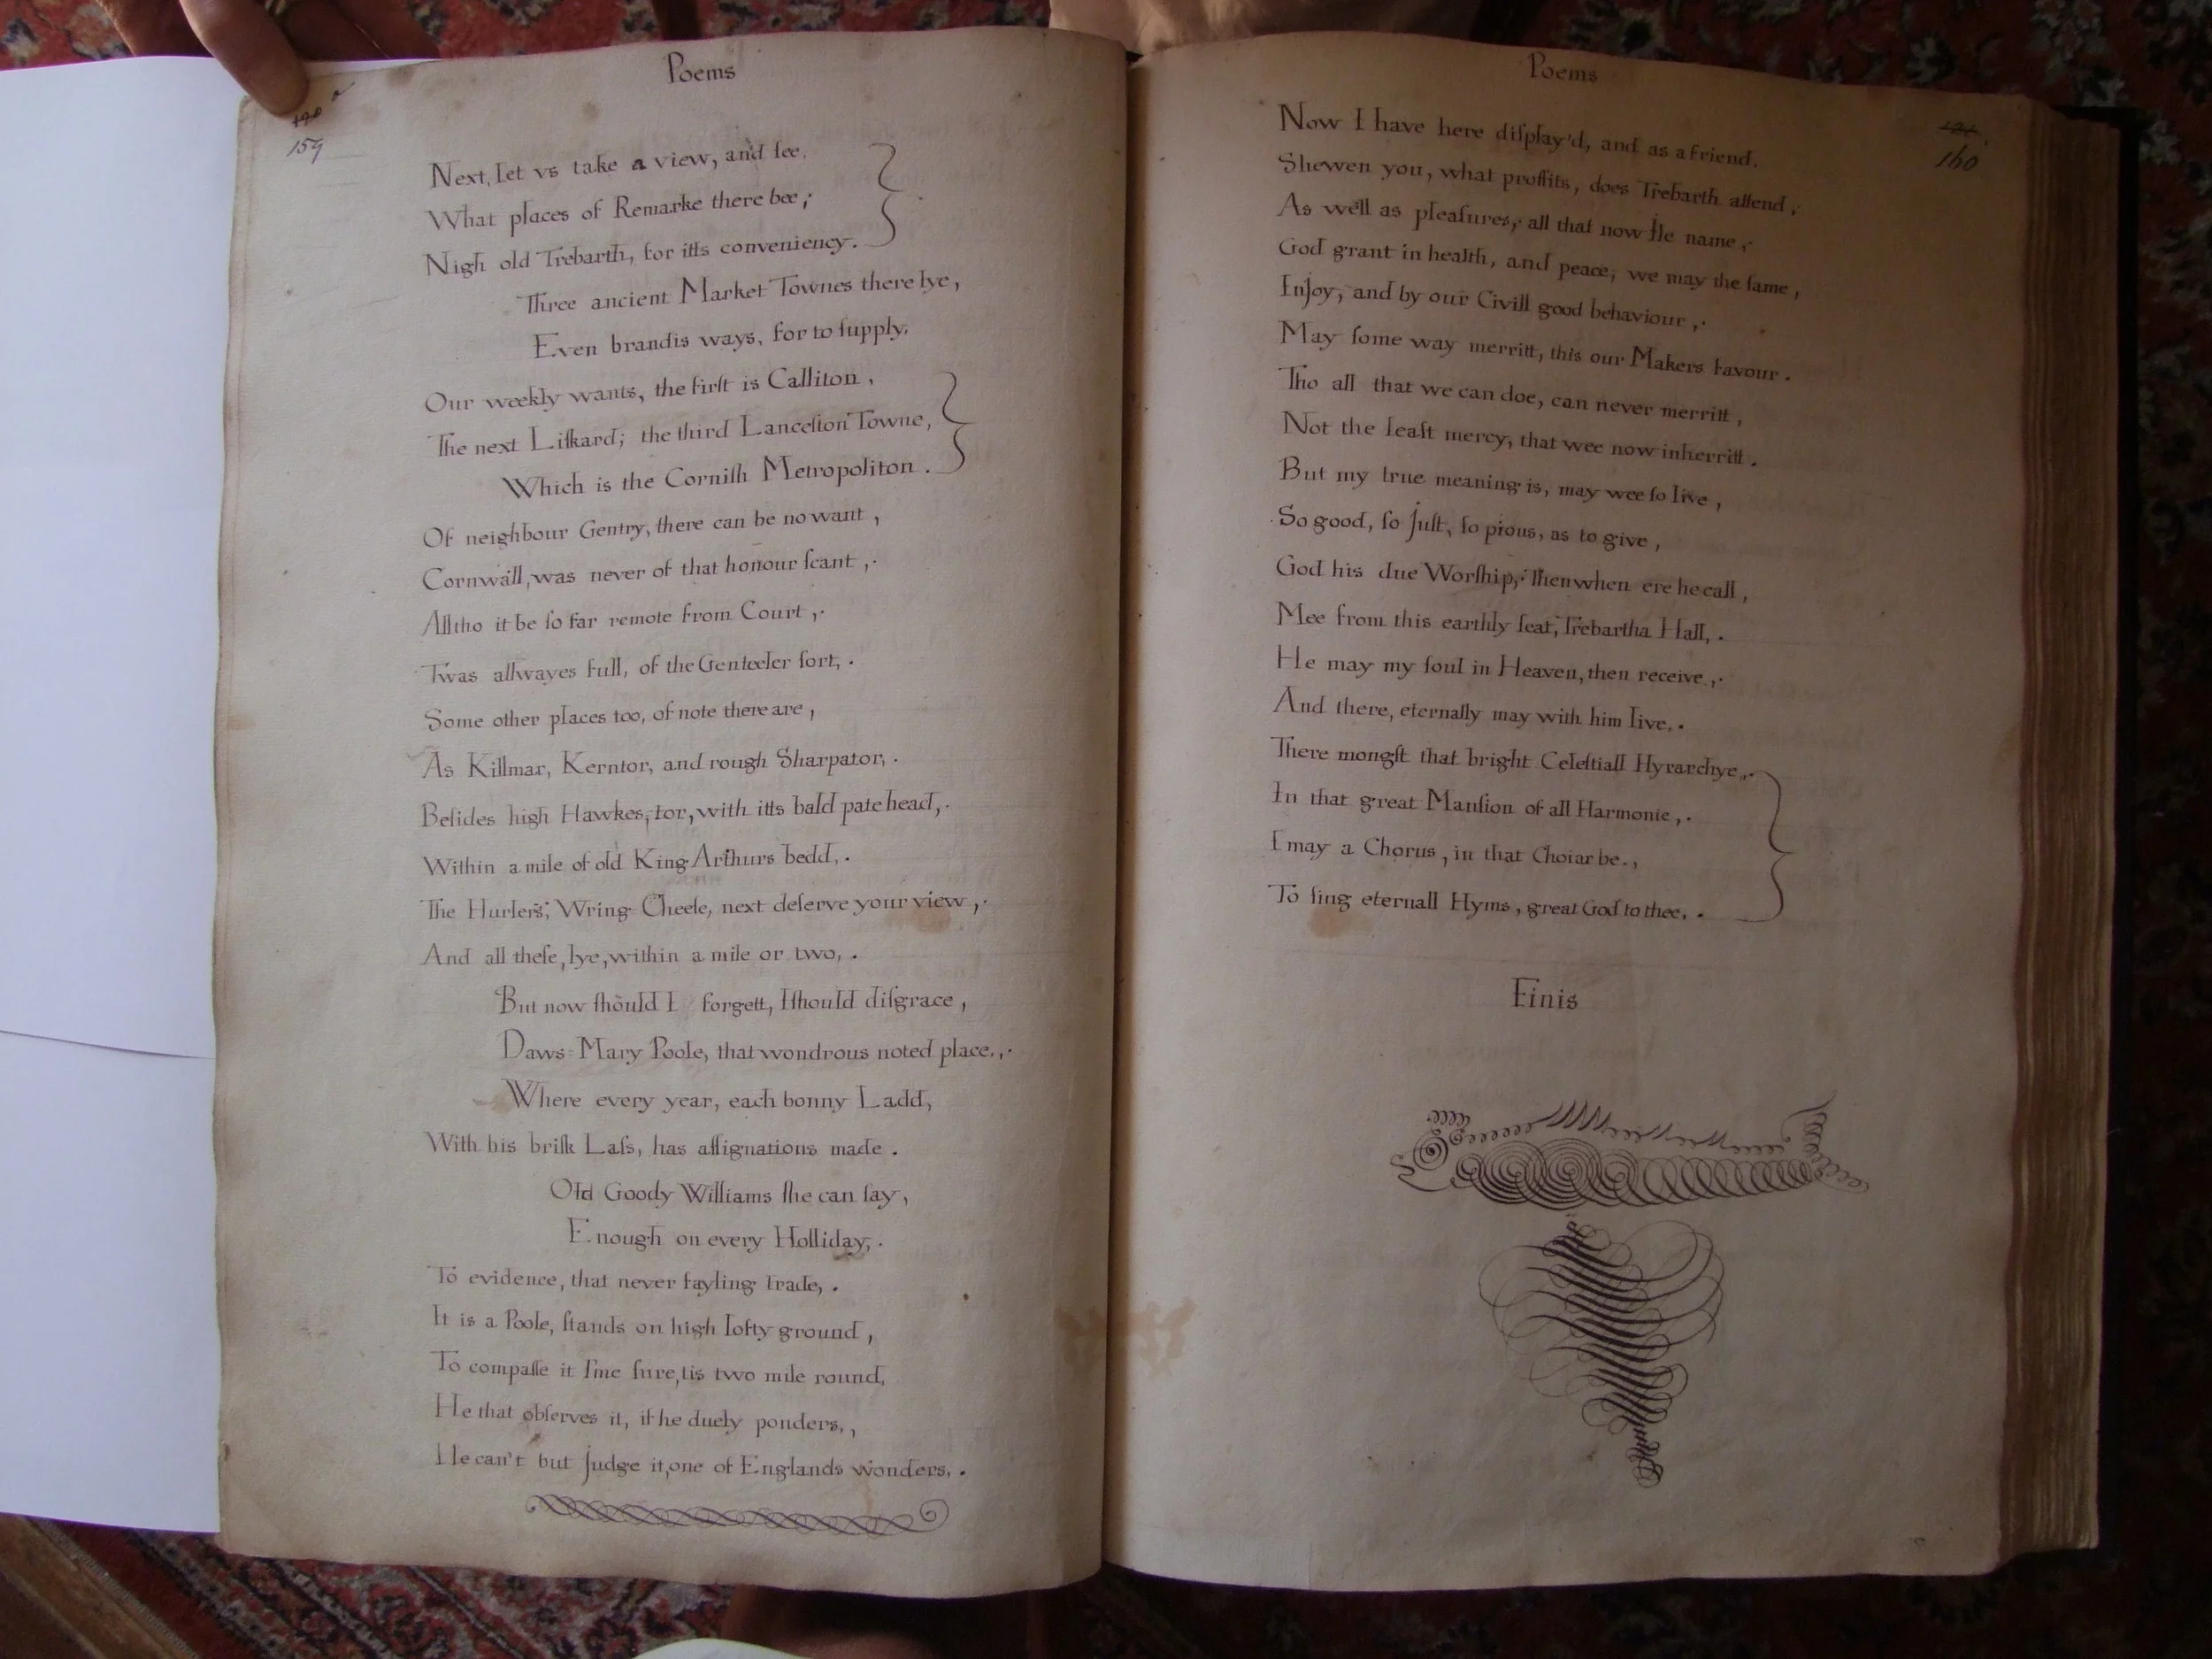 Poems
159
Next, let vs take a view, and ſee,
What places of Remarke there bee;
Nigh old Trebarth, for itts conveniency.
Three ancient Market Townes there lye,
Even brandis ways, for to ſupply,
Our weekly wants, the firſt is Calliton,
The next Liſkard; the third Lanceſton Towne,
Which is the Corniſh Metropoliton.
Of neighbour Gentry, there can be no want,
Cornwall, was never of that honour ſcant,.
Alltho it be ſo far remote from Court,.
Twas allwayes full, of the Genteeler ſort,.
Some other places too, of note there are,
As Killmar, Kerntor, and rough Sharpator,.
Beſides high Hawkes-tor, with itts bald pate head,.
Within a mile of old King Arthurs bedd,.
The Hurlers, Wring Cheeſe, next deſerve your view,.
And all theſe, lye, within a mile or two,.
But now ſhould I forgett, I ſhould diſgrace,
Daws-Mary Poole, that wondrous noted place.,.
Where every year, each bonny Ladd,
With his briſk Laſs, has aſſignations made.
Old Goody Williams ſhe can ſay,
Enough on every Holliday,.
To evidence, that never fayling trade,.
It is a Poole, ſtands on high lofty ground,
To compaſſe it I'me ſure, tis two mile round,
He that obſerves it, if he duely ponders,,
He can't but Judge it, one of Englands wonders,.
Poems
160
Now I have here diſplay'd, and as a friend.
Shewen you, what proffits, does Trebarth attend;
As well as pleaſures,. all that now Ile name,.
God grant in health, and peace, we may the ſame,
Enjoy, and by our Civill good behaviour,.
May ſome way merritt, this our Makers favour.
Tho all that we can doe, can never merritt,
Not the leaſt mercy, that wee now inherritt.
But my true meaning is, may wee ſo live,
So good, ſo Juſt, ſo pious, as to give,
God his due Worſhip,. Then when ere he call,
Mee from this earthly ſeat, Trebartha Hall,.
He may my ſoul in Heaven, then receive,.
And there, eternally may with him live,.
There mongſt that bright Celeſtiall Hyrarchye,.
In that great Manſion of all Harmonie,.
I may a Chorus, in that Choiar be.,
To ſing eternall Hyms, great God to thee,.
Finis